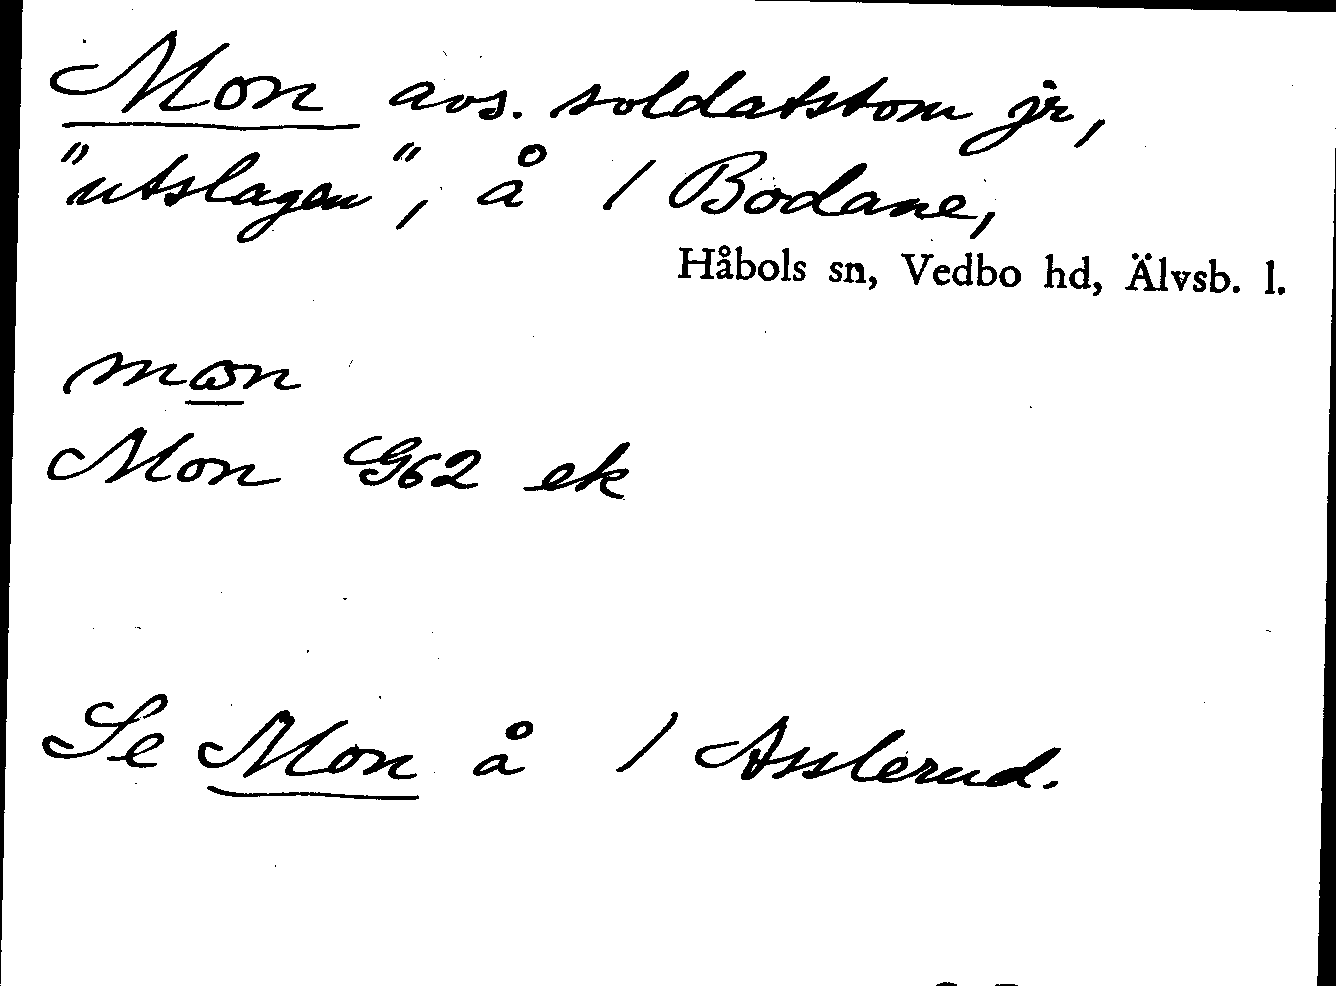 Mon avs. soldatstom jr,
"utslagen", å 1 Bodane,
Håbols sn, Vedbo hd, Älvsb. l.
mɷn
Mon G62 ek
Se Mon å 1 Asslerud.